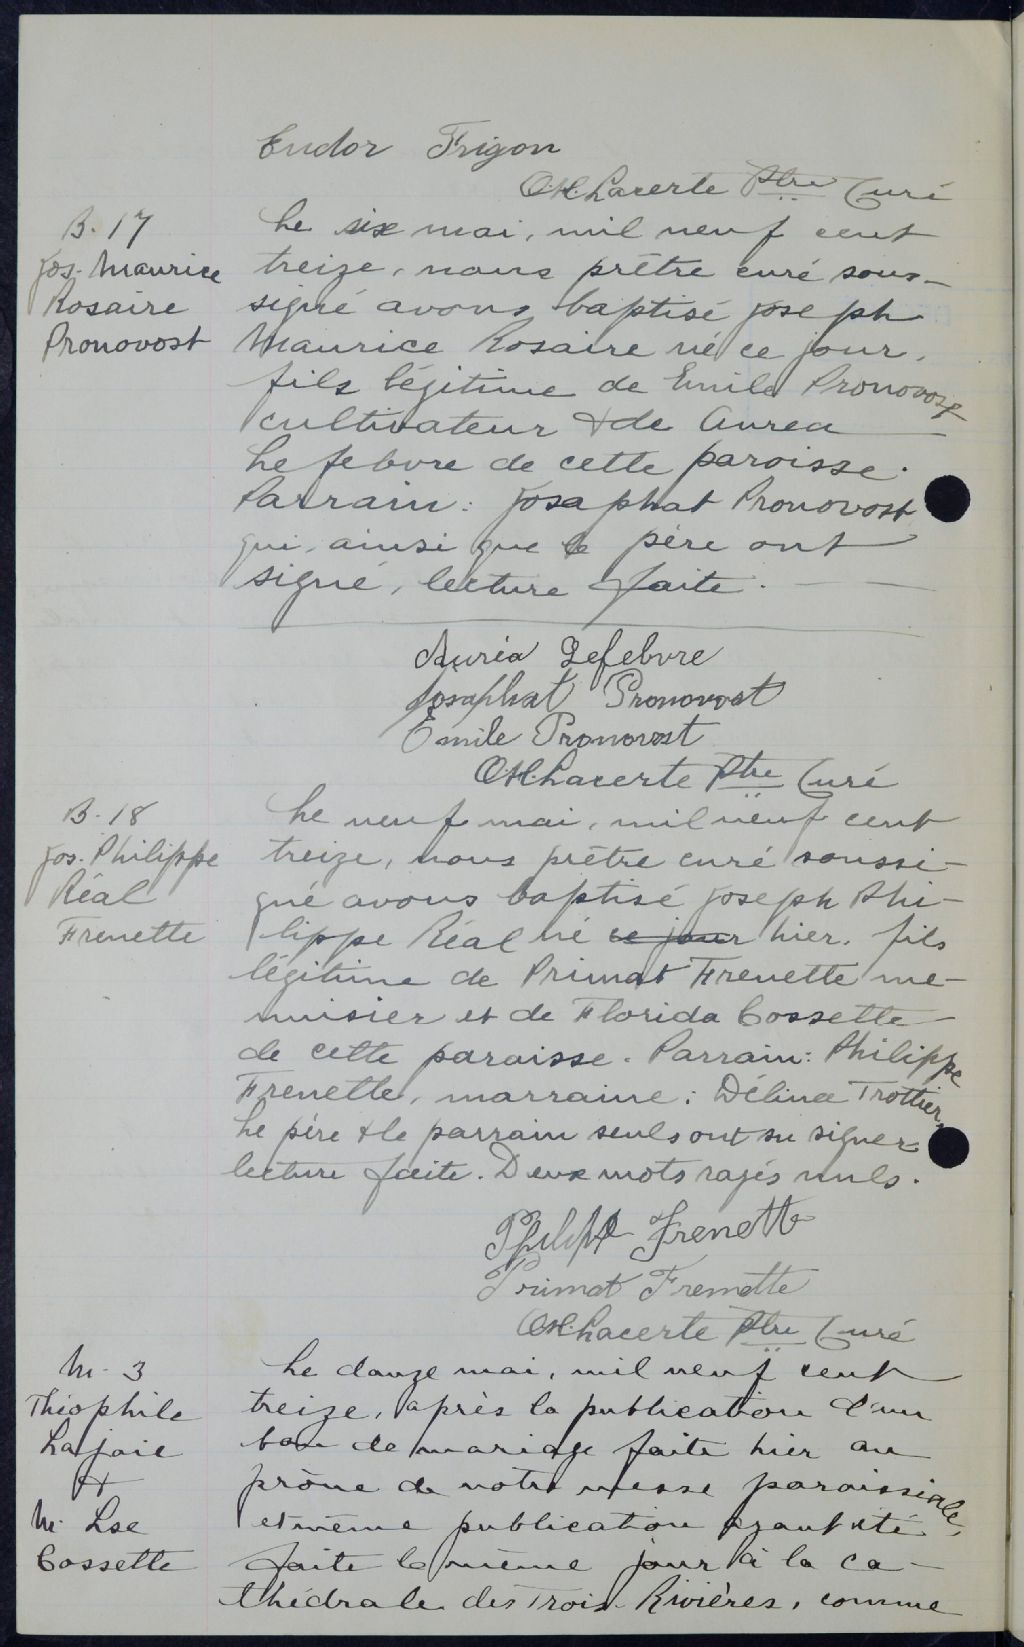 Endor Frigon
O.H. Lacerte Ptre Curé
B. 17
Jos. Maurice
Rosaire
Pronovost
Le six mai, mil neuf cent
treize, nous prêtre curé sous-
signé avons baptisé Joseph
Maurice Rosaire né ce jour,
fils légitime de Emile Pronovost
cultivateur & de Aurea
Lefebvre de cette paroisse.
Parrain: Josaphat Pronovost
qui, ainsi que le père ont
signé, lecture faite.
Auréa Lefebvre
Josaphat Pronovost
Emile Pronovost
O.H. Lacerte Ptre Curé
B. 18
Jos. Philippe
Réal
Frenette
Le neuf mai, mil neuf cent
treize, nous prêtre curé soussi-
gné avons baptisé Joseph Phi-
lippe Réal né ce jour hier. fils
légitime de Primat Frenette me-
nuisier et de Florida Cossette
de cette paroisse. Parrain: Philippe
Frenette, marraine: Délina Trottier.
Le père & le parrain seuls ont su signer
lecture faite. Deux mots rayés nuls.
Philipp Frenette
Primat Frenette
O.H. Lacerte Ptre Curé
M. 3
Théophile
Lajoie
&
M. Lse
Cossette
Le douze mai, mil neuf cent
treize, après la publication d'un
ban de mariage faite hier au
prône de notre messe paroissiale,
et même publication ayant été
faite le même jour à la ca-
thédrale des Trois-Rivières, comme